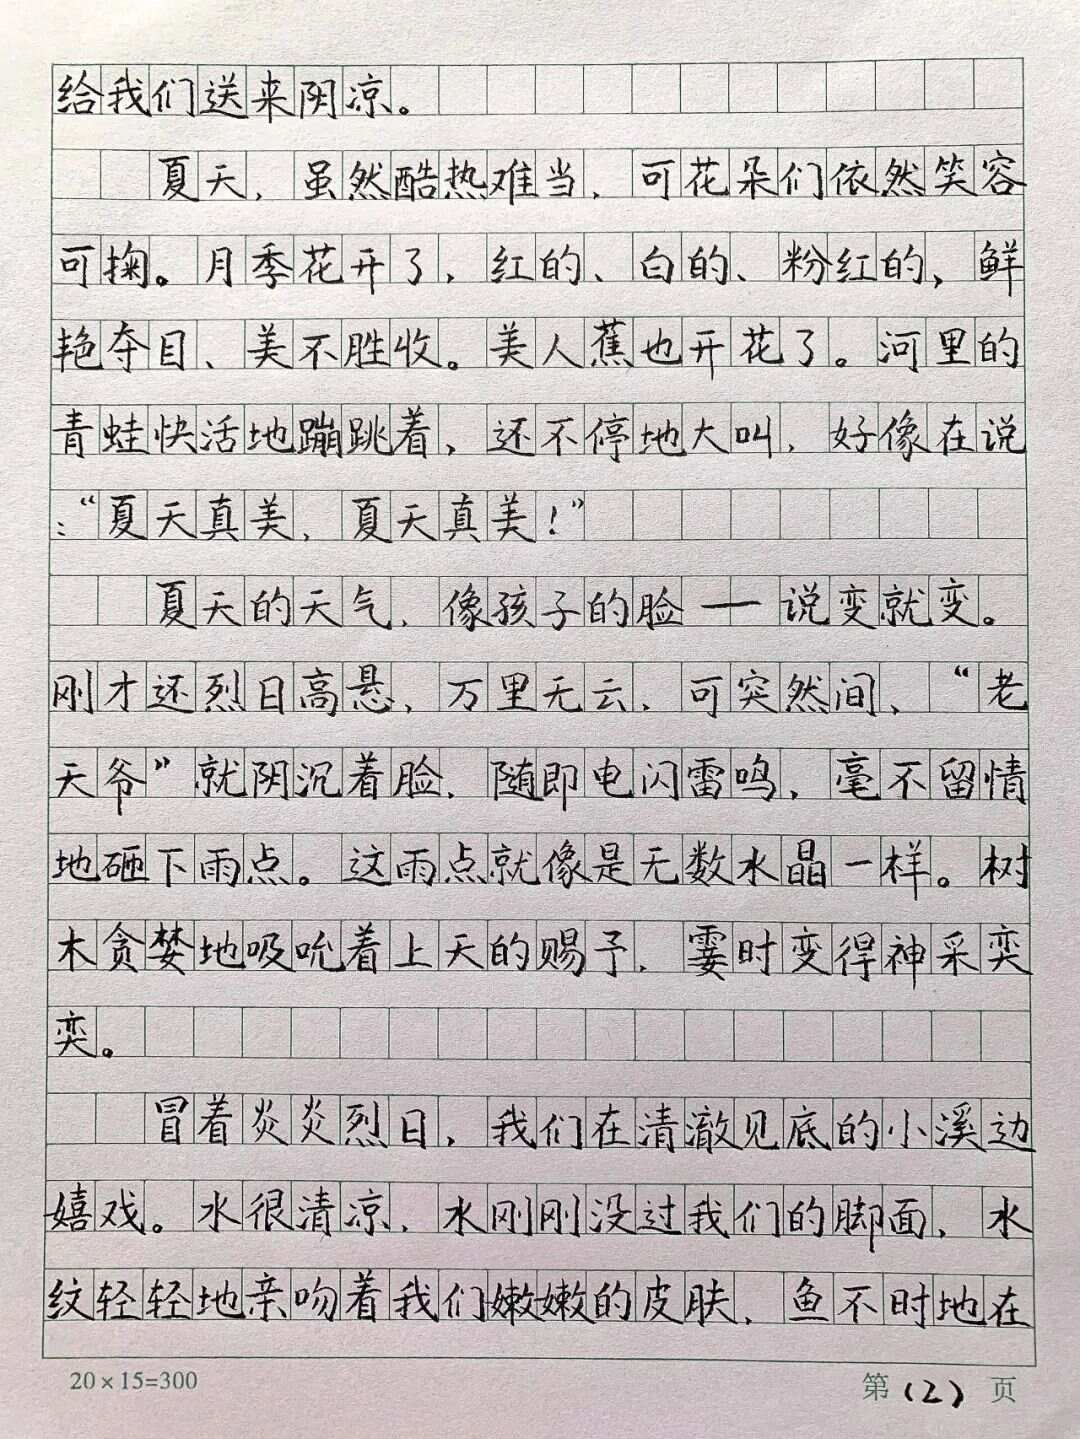 给我们送来阴凉。
夏天，虽然酷热难当，可花朵们依然笑容
可掬。月季花开了，红的、白的、粉红的，鲜
艳夺目、美不胜收。美人蕉也开花了。河里的
青蛙快活地蹦跳着，还不停地大叫，好像在说
：“夏天真美，夏天真美！”
夏天的天气，像孩子的脸一说变就变。
刚才还烈日高悬，万里无云，可突然间，“老
天爷”就阴沉着脸，随即电闪雷鸣，毫不留情
地砸下雨点。这雨点就像是无数水晶一样。树
木贪婪地吸吮着上天的赐予，霎时变得神采奕
奕。
冒着炎炎烈日，我们在清澈见底的小溪边
嬉戏。水很清凉，水刚刚没过我们的脚面，水
纹轻轻地亲吻着我们嫩嫩的皮肤，鱼不时地在
20×15=300 第（2）页